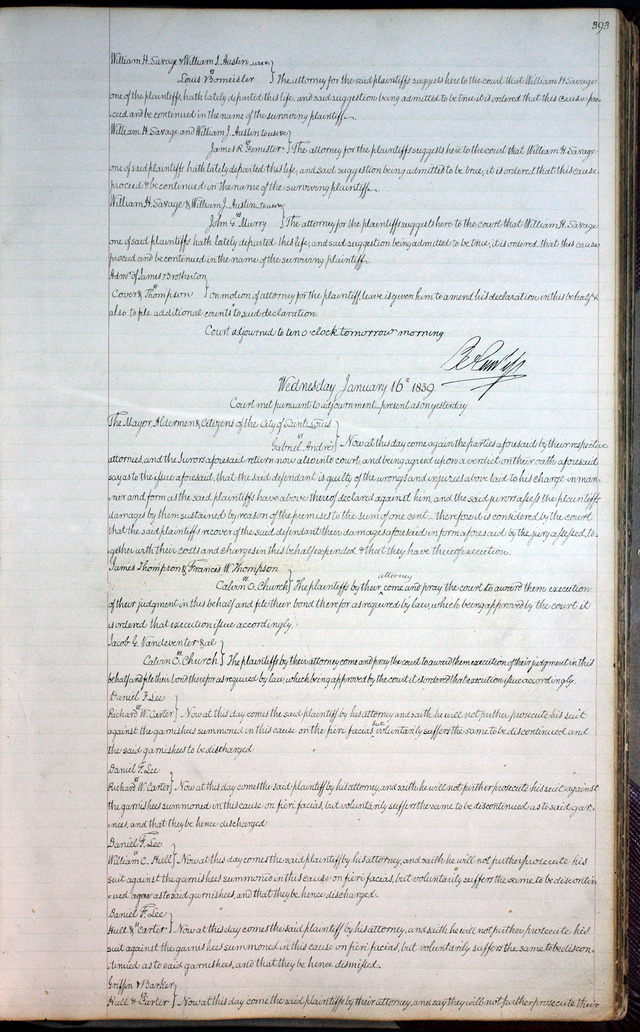 393
William H. Savage & William J. Austin use &c }
vs
Louis Bomeisler } The attorney for the said plaintiffs suggests here to the court that William H. Savage
one of the plaintiffs, hath lately departed this life, and said suggestion being admitted to be true it is ordered that this cause pro-
ceed and be continued in the name of the surviving plaintiff.
William H. Savage and William J. Austin to use &c }
vs
James R. } The attorney for the plaintiffs suggests here to the court that William H. Savage
one of said plaintiffs hath lately departed this life, and said suggestion being admitted to be true; it is ordered that this cause
proceed & be continued in the name of the surviving plaintiff.
William H. Savage & William J. Austin to use &c }
vs
John G. Murry } The attorney for the plaintiffs suggests here to the court that William H. Savage
one of said plaintiffs hath lately departed this life, and said suggestion being admitted to be true; it is ordered that this cause
proceed and be continued in the name of the surviving plaintiff.
Admr of James Brotherton
vs
Cover & Thompson } on motion of attorney for the plaintiff, leave is given him to amend his declaration in this behalf &
also to file additional counts to said declaration.
Court adjourned to ten o'clock tomorrow morning
Wednesday January 16th 1839
Court met pursuant to adjournment present as on yesterday
The Mayor Aldermen & Citizens of the City of Saint Louis }
vs
Gabriel André } Now at this day come again the parties aforesaid by their respective
attorneys, and the Jurors aforesaid return now also into court, and being agreed upon a verdict on their oath aforesaid
say as to the issue aforesaid, that the said defendant is guilty of the wrongs and injuries above laid to his charge in man-
ner and form as the said plaintiffs have above thereof declared against him, and the said jurors assess the plaintiffs
damages by them sustained by reason of the premises to the sum of one cent – therefore it is considered by the court
that the said plaintiffs recover of the said defendant their damages aforesaid in form aforesaid by the jury assessed, to-
gether with their costs and charges in this behalf expended & that they have thereof execution.
James Thompson & Francis W. Thompson
vs
Calvin O. Church } The plaintiffs by their attorney come and pray the court to award them execution
of their judgment in this behalf and file their bond therefor as required by law, which being approved by the court it
is ordered that execution issue accordingly.
Jacob G. Vandeventer & al }
vs
Calvin O. Church } The plaintiffs by their attorney come and pray the court to award them execution of their judgment in this
behalf and file their bond therefor as required by law, which being approved by the court it is ordered that execution issue accordingly.
Daniel F. Lee }
vs
Richard W. Carter } Now at this day comes the said plaintiff by his attorney and saith he will not further prosecute his suit
against the garnishees summoned in this cause on the fieri facias, but voluntarily suffers the same to be discontinued and
the said garnishees to be discharged
Daniel F. Lee }
vs
Richard W. Carter } Now at this day comes the said plaintiff by his attorney, and saith he will not further prosecute his suit against
the garnishees summoned in this cause on fieri facias, but voluntarily suffers the same to be discontinued as to said gar-
nees, and that they be hence discharged
Daniel F. Lee }
vs
William C. Hull } Now at this day comes the said plaintiff by his attorney, and saith he will not further prosecute his
suit against the garnishees summoned in this cause on fieri facias, but voluntarily suffers the same to be discontin-
ued as to said garnishees, and that they be hence discharged.
Daniel F. Lee }
vs
Hull & Carter } Now at this day comes the said plaintiff by his attorney, and saith he will not further prosecute his
suit against the garnishees summoned in this cause on fieri facias, but voluntarily suffers the same to be discon-
tinued as to said garnishees, and that they be hence dismissed.
Griffin & Barker }
vs
Hull & Carter } Now at this day come the said plaintiffs by their attorney, and say they will not further prosecute their